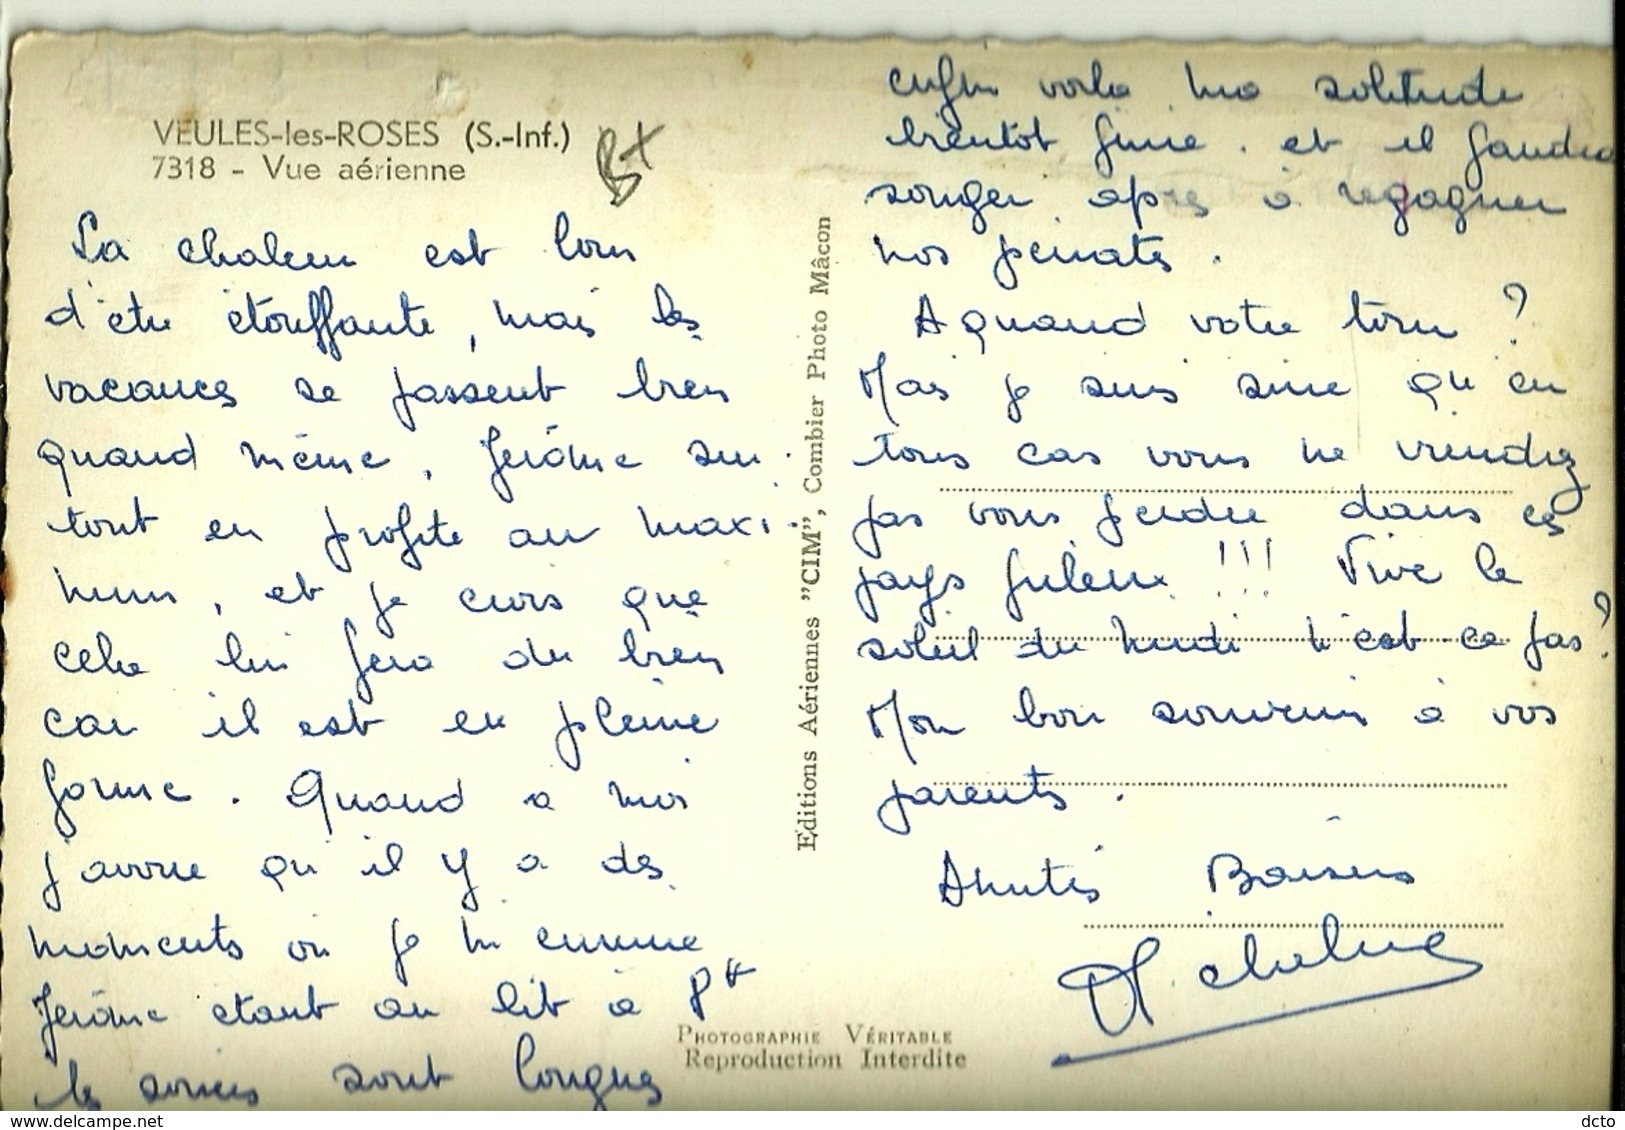 VEULES-les-ROSES (S.-Inf.)
7318 - Vue aérienne
La chaleur est loin
d'être étouffante, mais les
vacances se passent bien
quand même. Jérôme sur.
tout en profite au maxi.
mum, et je crois que
cela lui fera du bien
car il est en pleine
forme. Quand à moi
j'avoue qu'il y a des
moments où je m'ennuie
Jérôme étant au lit à 8H
les soirées sont longues
enfin voila ma solitude
bientôt finie. et il faudra
songer après à regagner
nos pénates.
A quand votre tour ?
Mais je suis sûre qu'en
tous cas vous ne viendrez
pas vous perdre dans ces
pays frileux !!! Vive le
soleil du midi n'est-ce pas ?
Mon bon souvenir à vos
parents.
Amitiés Baisers
Editions Aériennes "CIM", Combier Photo Mâcon
PHOTOGRAPHIE VÉRITABLE
Reproduction Interdite
www.delcampe.net
dcto